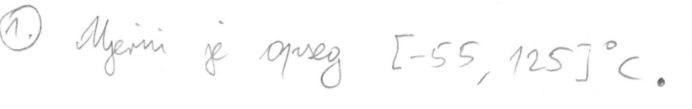 1. Mjerni je opseg [-55, 125]°C.